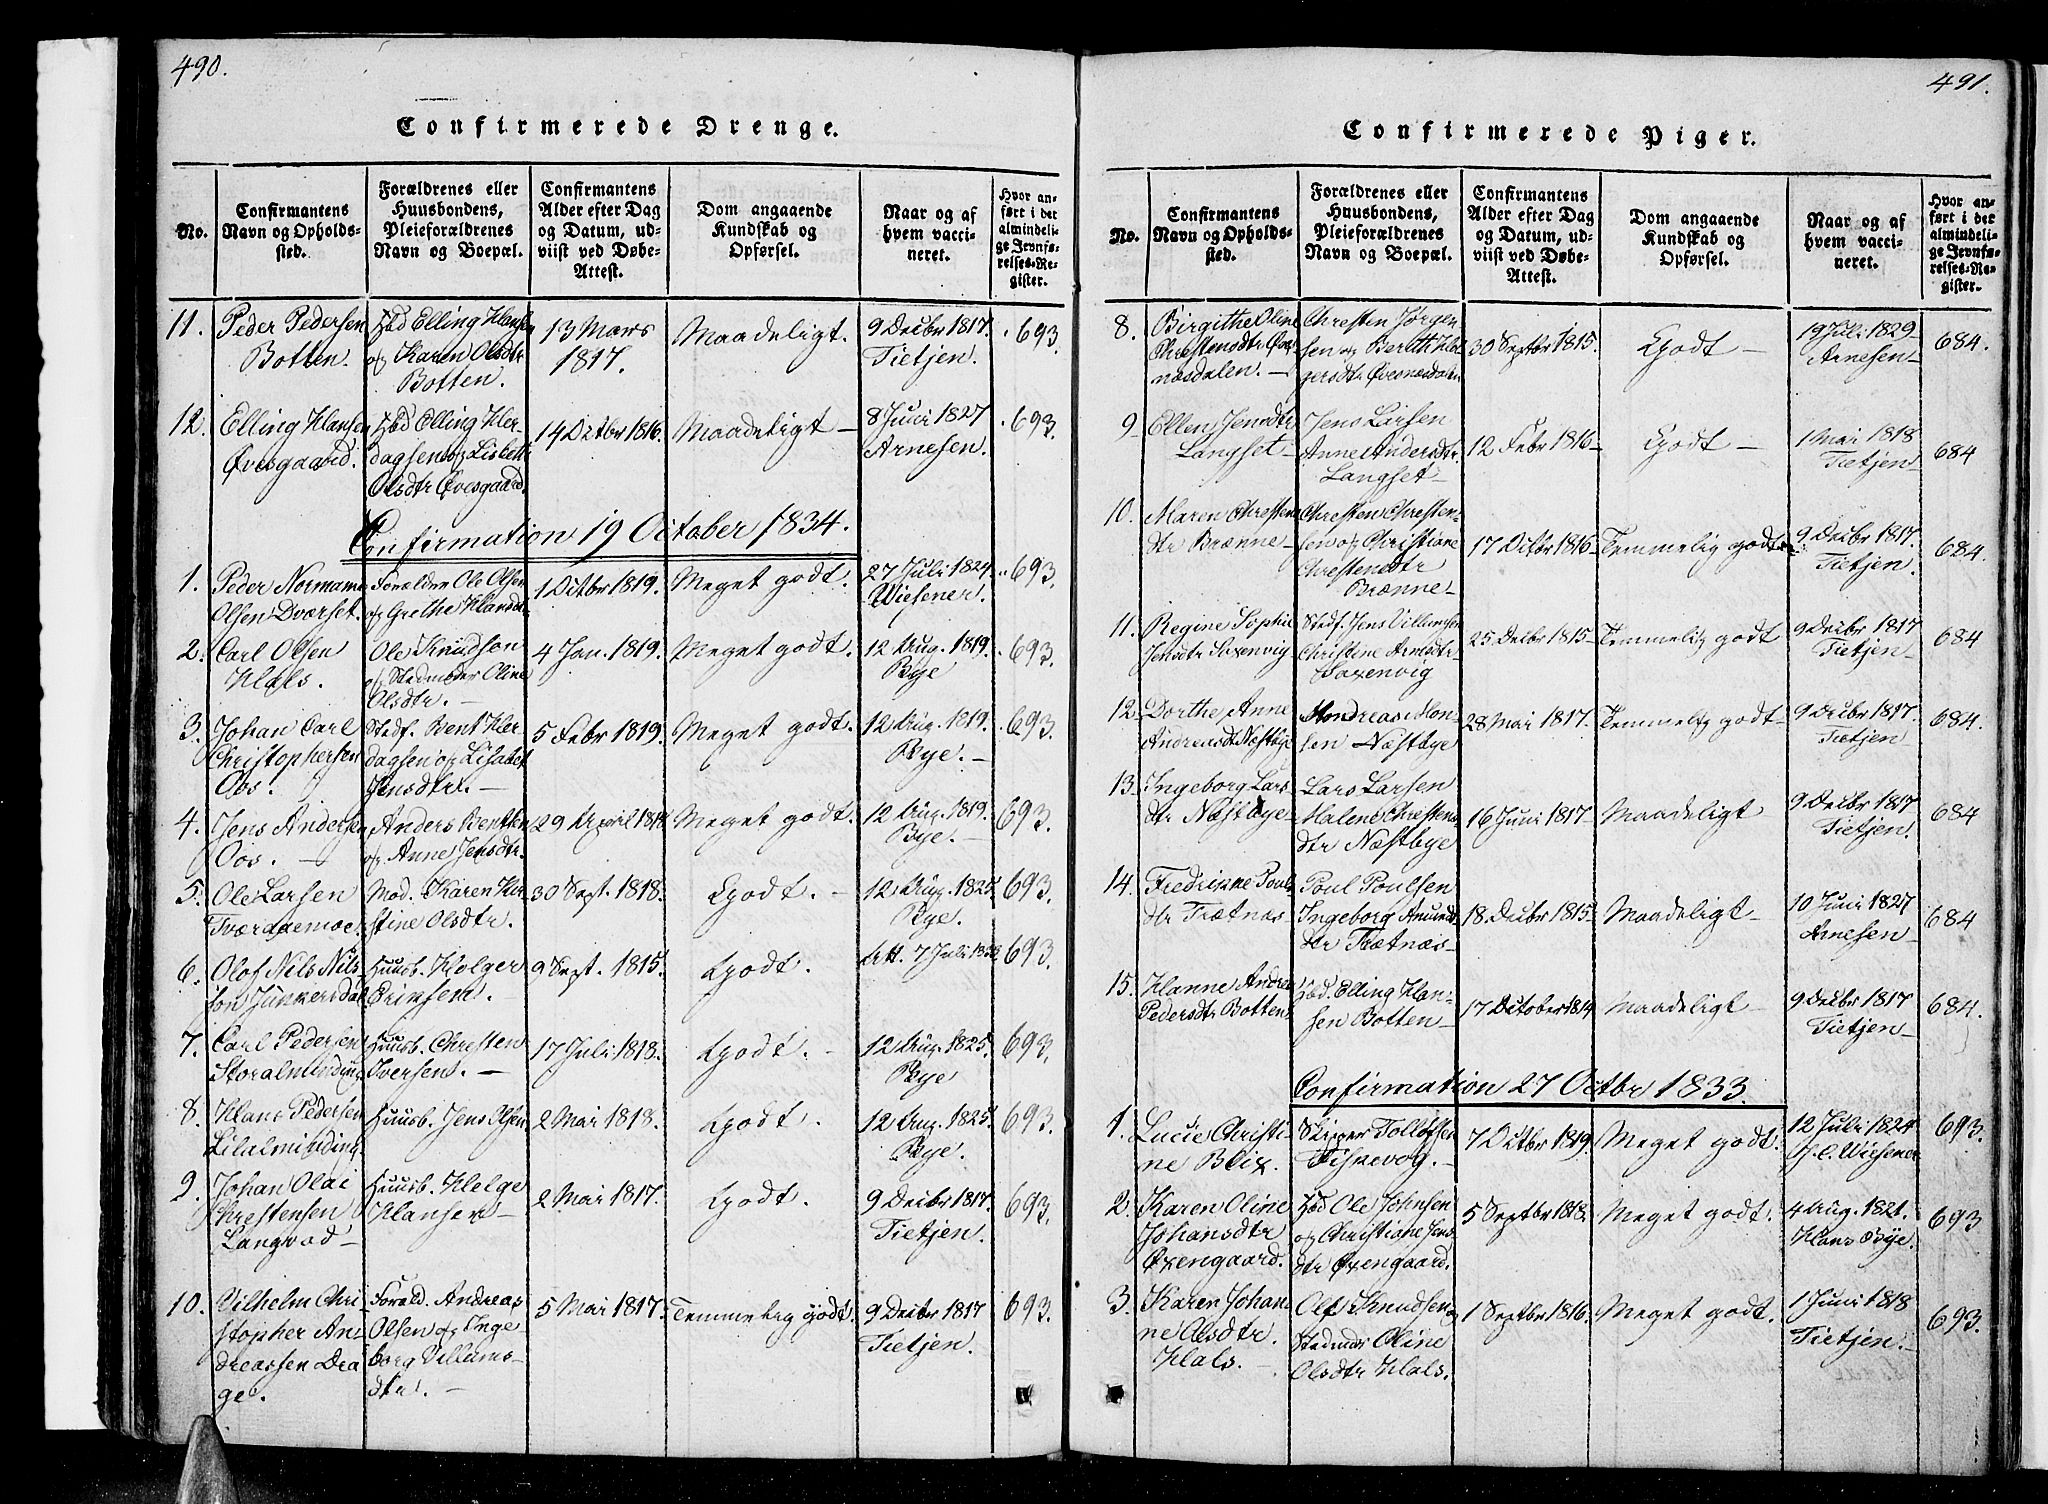 490.
Confirmerede Drenge.
No.
Confirmantens
Navn og Opholds-
sted.
Forældrenes eller
Huusbondens,
Pleieforældrenes
Navn og Boepæl.
Confirmantens
Alder efter Dag
og Datum, ud-
viist ved Døbe-
Attest.
Dom angaaende
Kundskab og
Opførsel.
Naar og af
hvem vacci-
neret.
Hvor an-
ført i det
almindeli-
ge Jevnfø-
relses-Re-
gister.
11.
Peder Pedersen
Botten.
Hbd Elling Hansen
og Karen Olsdtr
Botten.
13 Mars
1817.
Maadeligt.
9 Decbr 1817.
Tietjen.
693.
12.
Elling Hansen
Øvesgaard.
Hbd Elling Her-
dagsen og Lisbeth
Olsdtr Øvesgaard.
14 Octbr 1816.
Maadeligt —
8 Juni 1827
Arnesen.
693.
Confirmation 19 October 1834.
1.
Peder Normann
Olsen Dværset.
Forældre Ole Olsen
og Grethe Hansdt.
1 Octbr 1819.
Meget godt.
27 Juli 1824.
Wiesener.
693.
2.
Carl Olsen
Hals.
Ole Knudson
og Stedmoder Oline
Olsdtr. —
4 Jan. 1819.
Meget godt.
12 Aug. 1819.
Bye
693.
3.
Johan Carl
Christophersen
Oos.
Stedf. Bent Her
dagsen og Lisabet
Jensdtr. —
5 Febr 1819.
Meget godt.
12 Aug. 1819.
Bye. —
693.
4.
Jens Andersen
Oos. —
Anders Bentsen
og Anne Jensdtr.
29 April 1818
Meget godt.
12 Aug. 1819.
Bye. —
693.
5.
Ole Larsen
Tværaaemoe.
Mod. Karen Kir
stine Olsdtr.
30 Sept. 1818.
Godt. —
12 Aug. 1825.
Bye.
693.
6.
Olof Nils Nils
son Junkersdal
Huusb. Holger
Eriksen.
9 Sept. 1815.
Godt.
Att. 7 Juli
693.
7.
Carl Pedersen
Storalminding
Huusb. Christen
Iversen. —
17 Juli 1818.
Godt. —
12 Aug. 1825.
Bye
693.
8.
Hans Pedersen
Lilalminding.
Huusb. Jens Olsen
2 Mai 1818.
Godt.
12 Aug. 1825.
Bye.
693.
9.
Johan Olai
Chrestensen
Langvad —
Huusb. Helge
Hansen —
2 Mai 1817.
Godt.
9 Decbr 1817
Tietjen.
693.
10.
Vilhelm Chri
stopher An-
dreassen Dra
ge.
Foræld. Andreas
Olsen og Inge
borg Villums-
dtr. —
5 Mai 1817.
Temmelig godt.
9 Decbr 1817
Tietjen.
693.
491.
Confirmerede Piger.
No.
Confirmantens
Navn og Opholds-
sted.
Forældrenes eller
Huusbondens,
Pleieforældrenes
Navn og Boepæl.
Confirmantens
Alder efter Dag
og Datum, ud-
viist ved Døbe-
Attest.
Dom angaaende
Kundskab og
Opførsel.
Naar og af
hvem vacci-
neret.
Hvor an-
ført i det
almindeli-
ge Jevnfø-
relses-Re-
gister.
8.
Birgithe Oline
Chrestensdtr Øves
næsdalen. —
Chresten Jørgen
sen og Berith Hol
gersdtr Øvesnæsdalen
30 Septbr 1815.
Godt —
19 Juli 1829
Arnesen —
684.
9
Ellen Jensdtr
Langset —
Jens Larsen
Anne Andersdtr
Langset —
12 Febr 1816 —
Godt —
1 Mai 1818
Tietjen —
684
10.
Maren Chresten
dtr Brænne —
Chresten Chresten-
sen og Christiane
Chrestensdtr
Brænne —
17 Octbr 1816 —
Temmelig godt —
9 Decbr 1817.
Tietjen.
684.
11.
Regine Sophie
Jensdtr Saxenvig
Stedf. Jens Villumsen
Christine Arnsdtr
Saxenvig
25 Decbr 1815 —
Temmelig godt
9 Decbr 1817
Tietjen —
684
12.
Dorthe Anne
Andreasdt Næstbye
Andreas Mon
sen Næstbye
28 Mai 1817.
Temmelig godt —
9 Decbr 1817.
Tietjen —
684.
13.
Ingeborg Lars
dtr Næstbye —
Lars Larsen
Malene Christens
dtr Næstbye
16 Juni 1817 —
Maadeligt
9 Decbr 1817
Tietjen.
684
14.
Fredrikke Pouls
dtr Trætnæs
Poul Poulsen
Ingeborg Amunds
dtr Trætnæs —
18 Decbr 1815 —
Maadeligt —
10 Juni 1827
Arnesen —
684
15.
Hanne Andrea
Pedersdtr Botten.
Hbd. Elling Han-
sen Botten —
17 October 1814
Maadeligt —
9 Decbr 1817
Tietjen —
684.
Confirmation 27 Octbr 1833.
1.
Lucie Christi
ne Blix.
Skipper Tollefsen
Fiskevog. —
7 Octbr 1819.
Meget godt.
12 Juli 1824
J. C. Wiesener
693.
2.
Karen Oline
Johansdtr
Øxengaard.
Hbd Ole Johnsen
og Christiane Jens
dtr Øxengaard.
5 Septbr 1818.
Meget godt.
4 Aug. 1821.
Hans Bye.
693
3.
Karen Johan
ne Olsdtr.
Hals. —
Ole Knudsen og
Stedmod Oline
Olsdtr Hals.
1 Septbr 1816.
Meget godt.
1 Juni 1818
Tietjen. —
693.